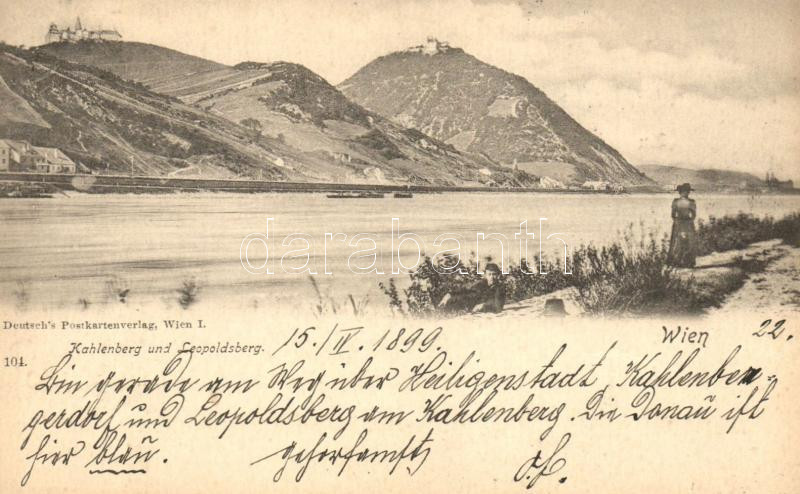 darabanth
Deutsch's Postkartenverlag, Wien I.
Wien 22.
Kahlenberg und Leopoldsberg. 15./IV. 1899.
104.
Bin gerade am Weg über Heiligenstadt, Kahlenber-
gerdorf und Leopoldsberg am Kahlenberg. Die Donau ist
hier blau. gehorsamst